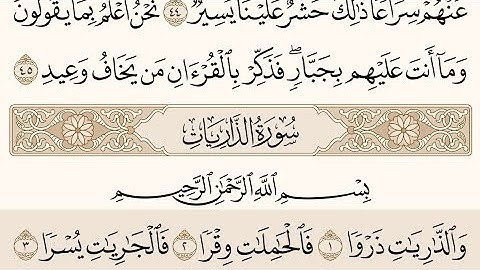 عَنْهُمْ سِرَاعًا ذَٰلِكَ حَشْرٌ عَلَيْنَا يَسِيرٌ ٤٤ نَّحْنُ أَعْلَمُ بِمَا يَقُولُونَ
وَمَآ أَنتَ عَلَيْهِم بِجَبَّارٍۖ فَذَكِّرْ بِٱلْقُرْءَانِ مَن يَخَافُ وَعِيدِ ٤٥
سُورَةُ الذَّارِيَات
بِسْمِ ٱللَّهِ ٱلرَّحْمَٰنِ ٱلرَّحِيمِ
وَٱلذَّٰرِيَٰتِ ذَرْوًا ١ فَٱلْحَٰمِلَٰتِ وِقْرًا ٢ فَٱلْجَٰرِيَٰتِ يُسْرًا ٣